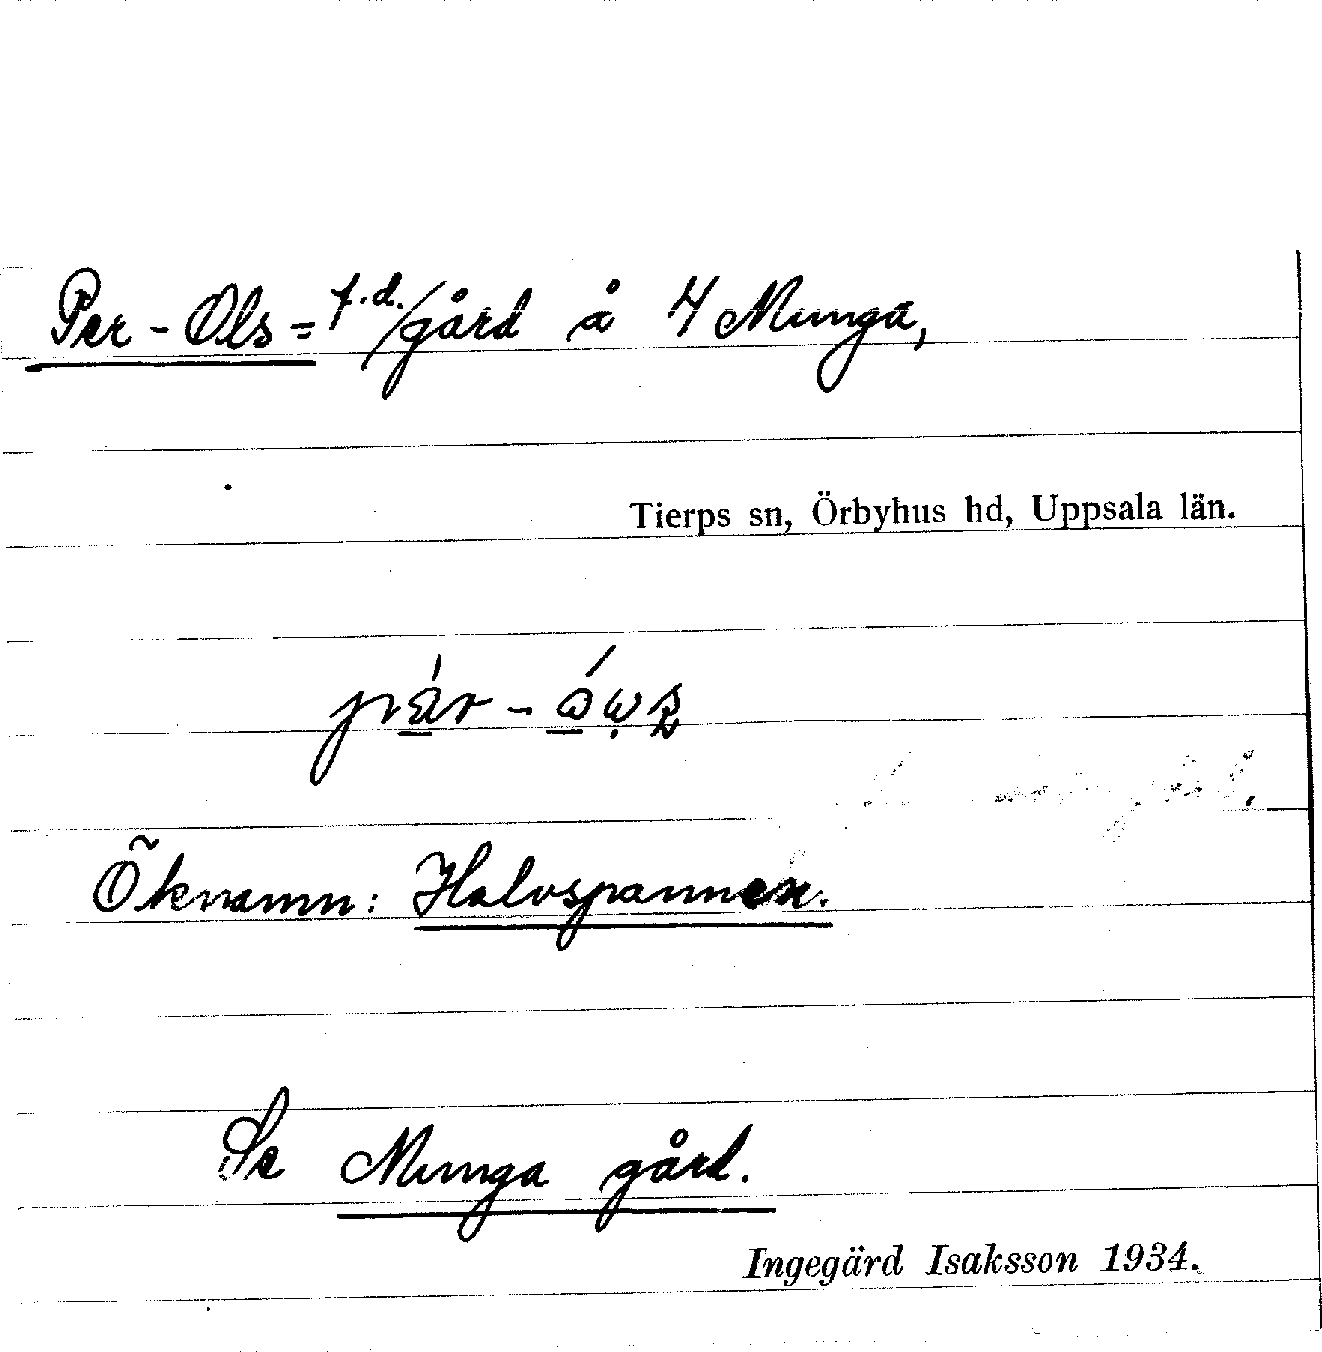 Per-Ols= f.d./gård å 4 Munga,
Tierps sn, Örbyhus hd, Uppsala län.
Öknamn: Halvspannen.
Se Munga gård.
Ingegärd Isaksson 1934.